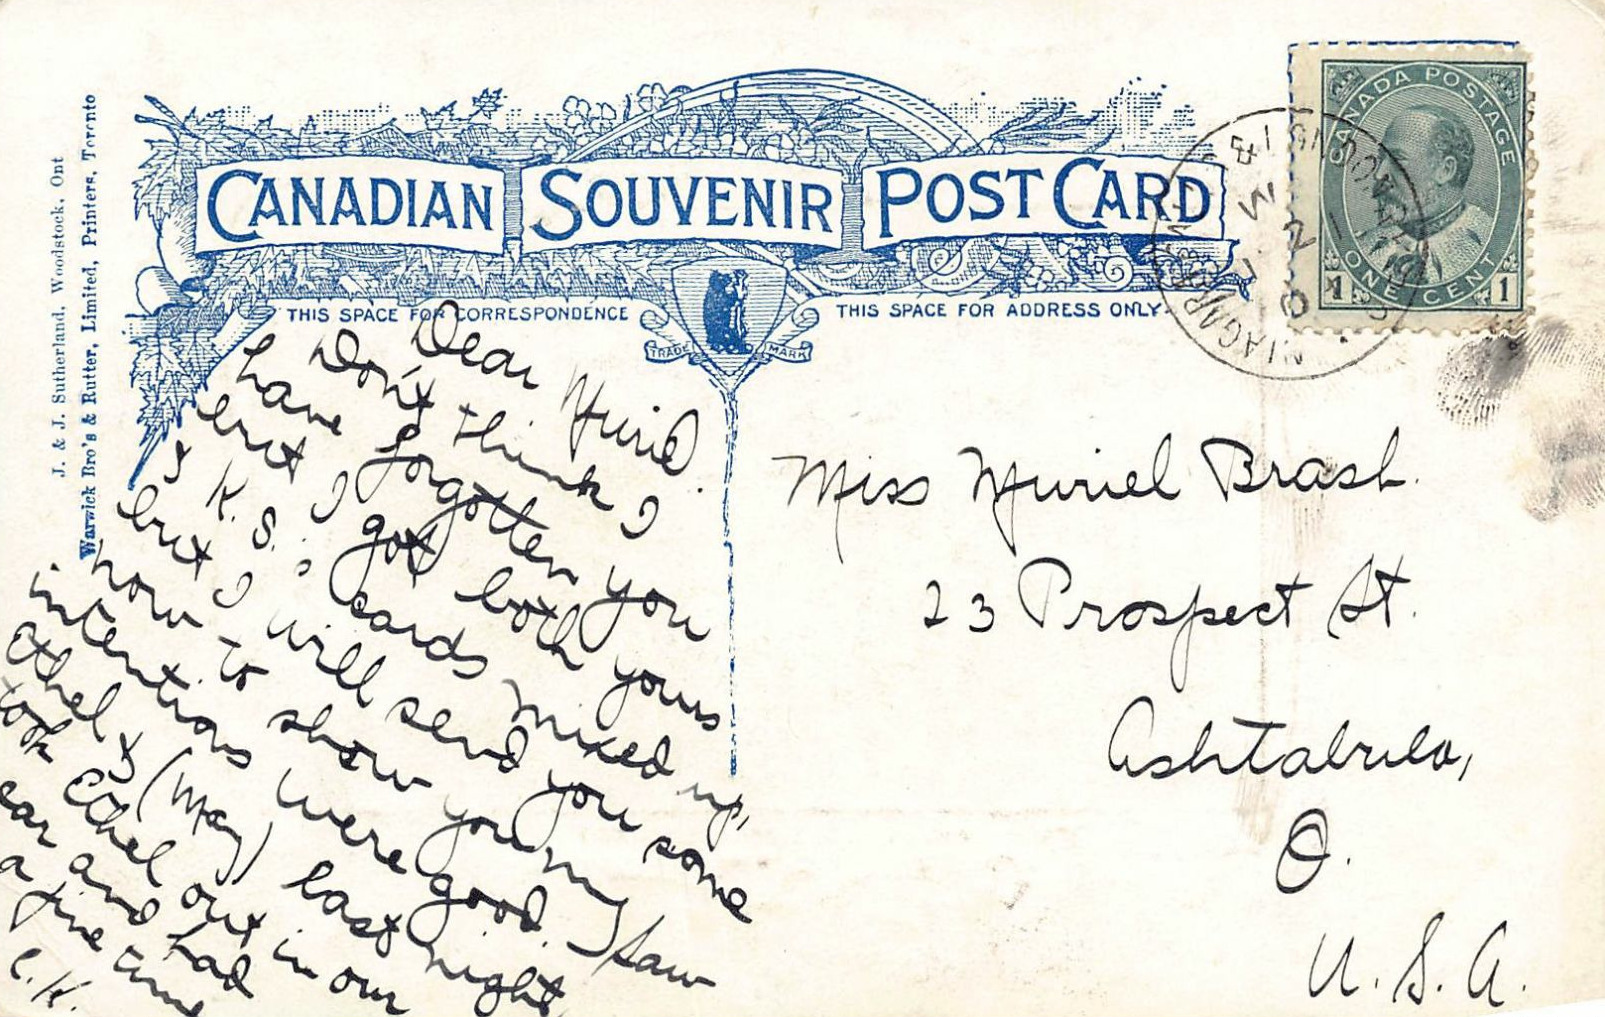 CANADIAN SOUVENIR POST CARD
THIS SPACE FOR CORRESPONDENCE
THIS SPACE FOR ADDRESS ONLY.
TRADE MARK
J. & J. Sutherland, Woodstock, Ont
Warwick Bro's & Rutter, Limited, Printers, Toronto
CANADA POSTAGE
1 ONE CENT 1
Dear Muriel.
Don't think I
have forgotten you
but I got both yours
& K. S.'s cards mixed up,
but I will send you some
now to show you my
intentions were good. I saw
Ethel & (May) last night
took Ethel out in our
car and had
a fine time
C.K.
Miss Muriel Brash.
23 Prospect St.
Ashtabula,
O.
U.S.A.